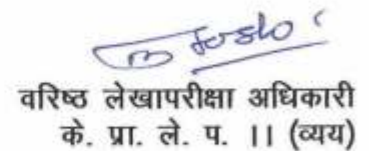 वरिष्ठ लेखापरीक्षा अधिकारी
के. प्रा. ले. प. ।। (व्यय)